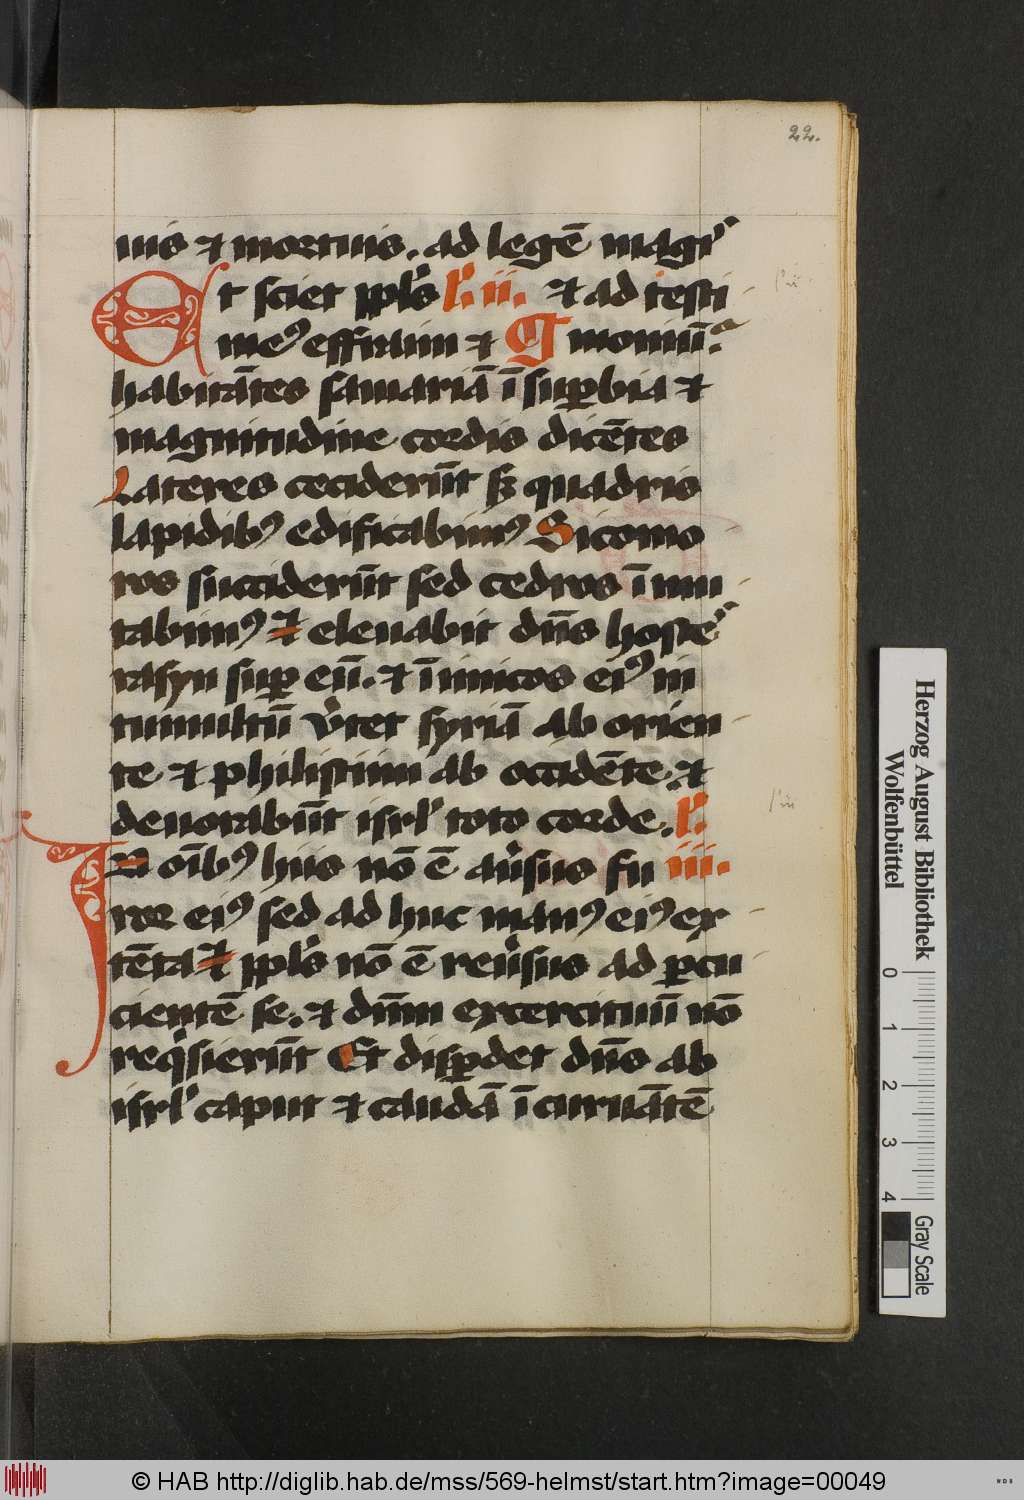 22.
uis et mortuis. ad legē magis
Et sciet ppl's l'. ii. et ad testi
me9 effraim et G moniū.
habitātes samariā ī supbia et
magnitudine cordis dicētes
Lateres ceciderūt sz quadris
lapidib9 edificabim9 Sicomo
ros succiderūt sed cedros ī mu
tabim9 et eleuabit dn̄s hoste
rasyn sup eū. et ī imicos ei9 in
tumultū v'tet syriā ab orien
te et philistiim ab occidēte. et
deuorabūt isrl' toto corde. l'.
In oīb9 hiis nō ē au'sus fu iii.
ror ei9 sed ad huc man9 ei9 ex
tēta et ppl's nō ē reu'sus ad pcu
cientē se. et dn̄m excercituū nō
req'sierūt Et dispdet dn̄s ab
isrl' caput et caudā ī curuātē
Herzog August Bibliothek
Wolfenbüttel
0 1 2 3 4
Gray Scale
© HAB http://diglib.hab.de/mss/569-helmst/start.htm?image=00049